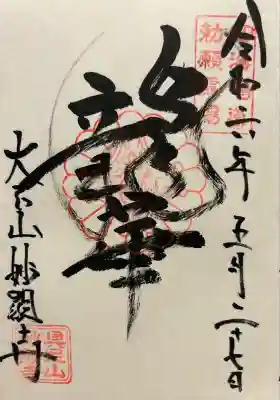 令和六年五月二十七日
勅願
龍華
大本山妙顕寺